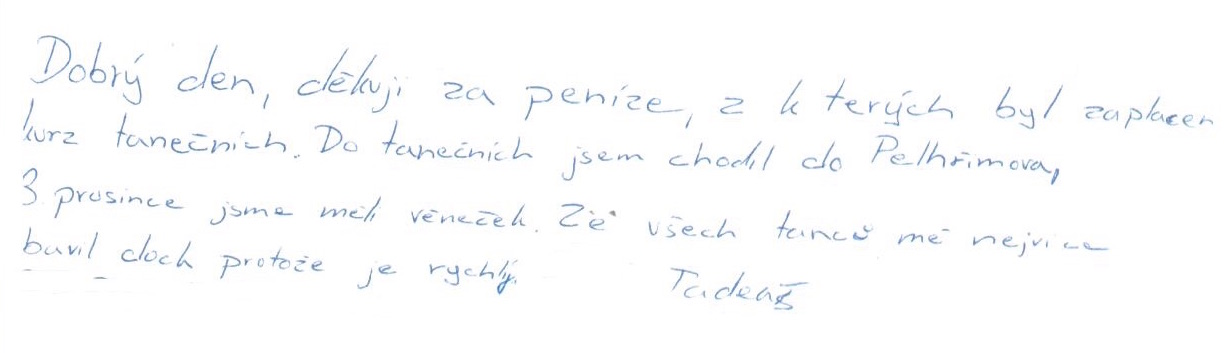 Dobrý den, děkuji za peníze, z kterých byl zaplacen
kurz tanečních. Do tanečních jsem chodil do Pelhřimova,
3 prosince jsme měli věneček. Ze všech tanců mě nejvíce
bavil čloch protože je rychlý.
Tadeáš